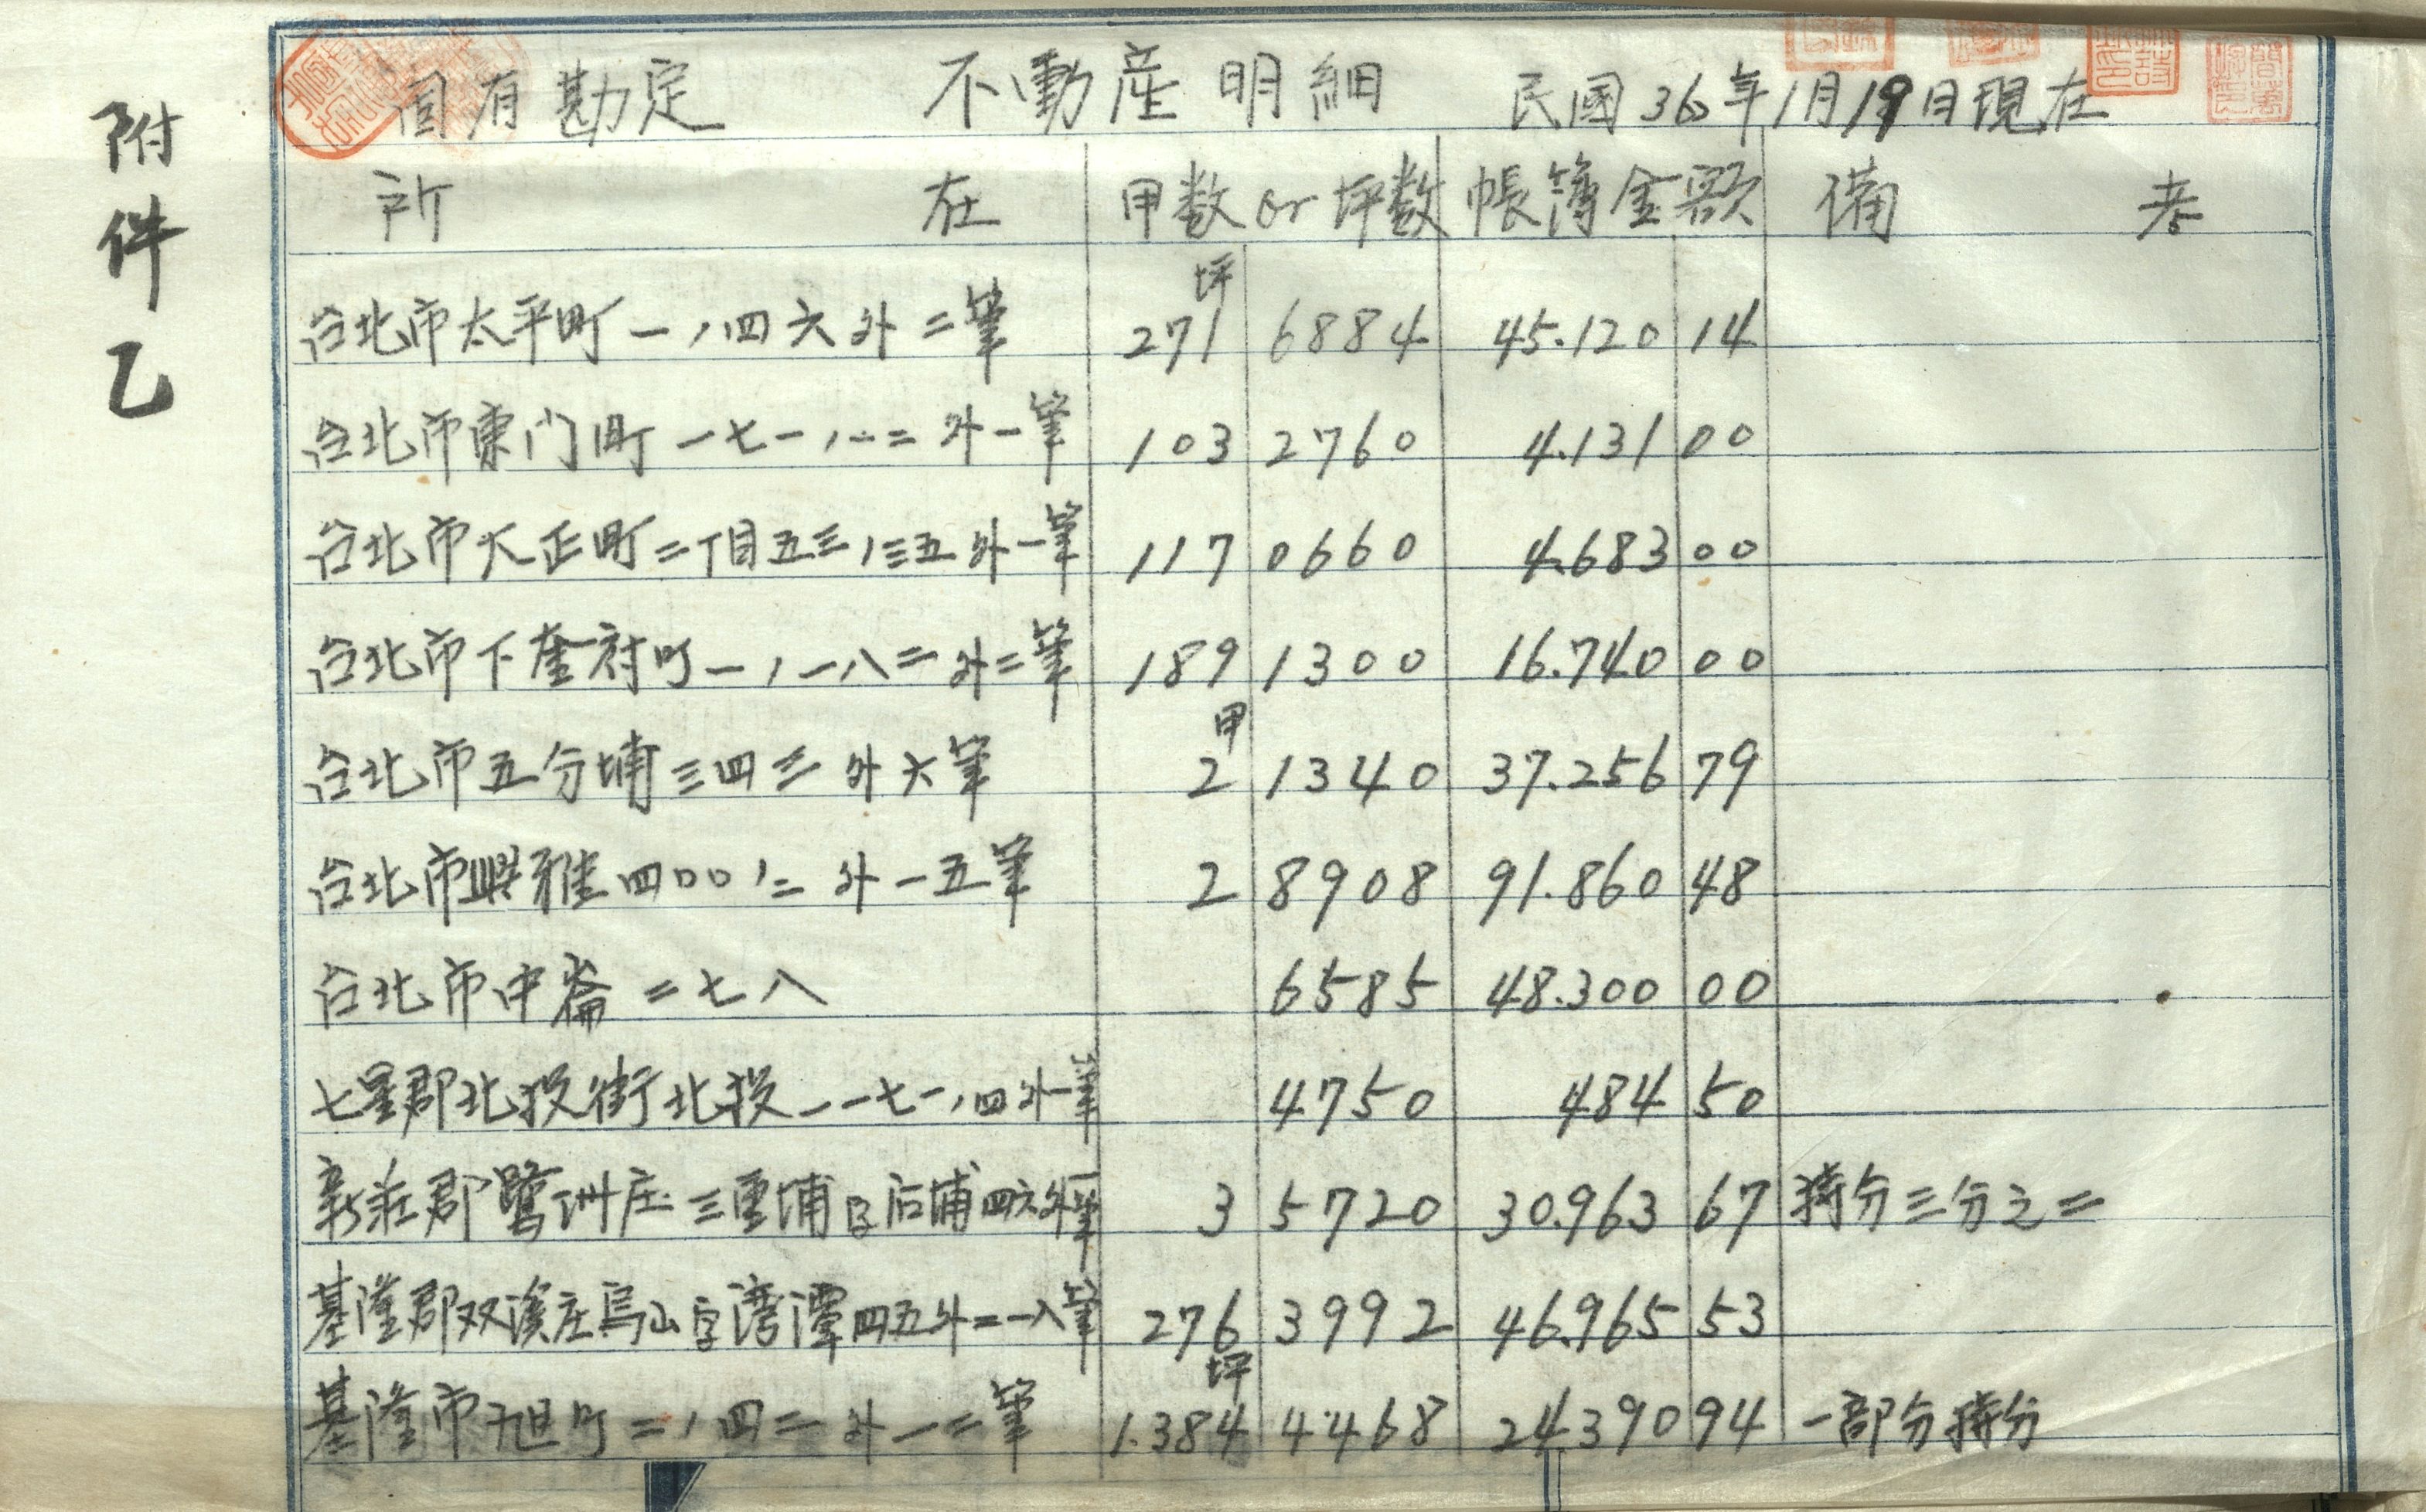 附件乙
固有勘定 不動産明細 民國36年1月19日現在
所在 甲数or坪数 帳簿金額 備考
台北市太平町一ノ四六外二筆 坪 271 6884 45.120 14
台北市東门町一七一ノ一二外一筆 103 2760 4.131 00
台北市大正町二丁目五三ノ三五外一筆 117 0660 4.683 00
台北市下奎府町一ノ一八二外二筆 189 1300 16.740 00
台北市五分埔三四三外六筆 甲 2 1340 37.256 79
台北市興雅四00ノ二外一五筆 2 8908 91.860 48
台北市中崙二七八 6585 48.300 00
七星郡北投街北投一一七一ノ四外一筆 4750 484 50
新莊郡鷺洲庄三重埔字后埔四六外一筆 3 5720 30.963 67 持分三分之二
基隆郡双溪庄烏山字湾潭四五外二一八筆 276 3992 46.965 53
基隆市旭町二ノ四二外一二筆 坪 1.384 4468 24.390 94 一部分持分